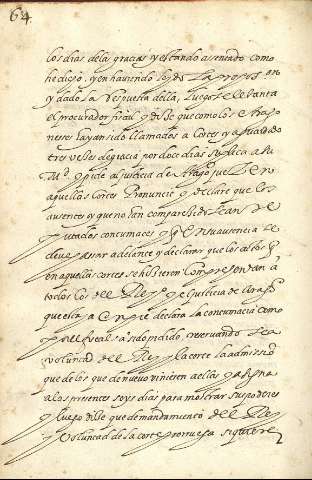 64
los dias dela gracia, y estando asentado como
he dicho, y en haviendo leydo La propos on
y dado la Respuesta della, Luego se levanta
el procurador fiscal y dise que como los Arago
neses hayan sido llamados a Cortes y aguardado
tres veses de gracia por doce dias Suplica a Su
M.d y pide al justicia de Arago
aquellas Cortes Pronuncie y declare que los
ausentes y que no han comparesido sean Re
putados contumaces y q en su ausencia se
deve pasar adelante y declarar que los actos q
en aquellas cortes se hisieren Comprendan a
todos los del Rey.o y el justicia de Arag.
que esta a declara la contumacia como
por el fiscal a sido pedido, reservando a la
voluntad del Rey y la corte la admissio
que de los que de nuevo vinieren a ellas y asigna
a los presentes seys dias para mostrar sus poderes
y luego dise que de mandamiento del Rey
y Voluntad de la corte prorruega